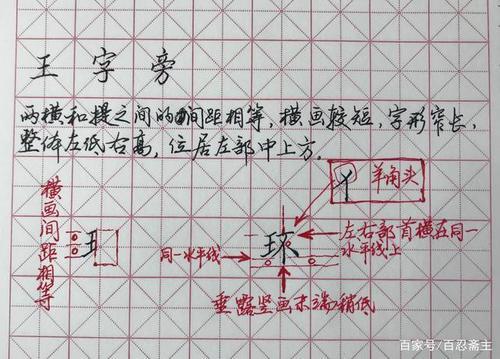 王字旁
两横和提之间的间距相等，横画较短，字形窄长，
整体左低右高，位居左部中上方。
羊角头
横画间距相等
王
同一水平线
环
左右部首横在同一
水平线上
垂露竖画末端稍低
百家号/百忍斋主